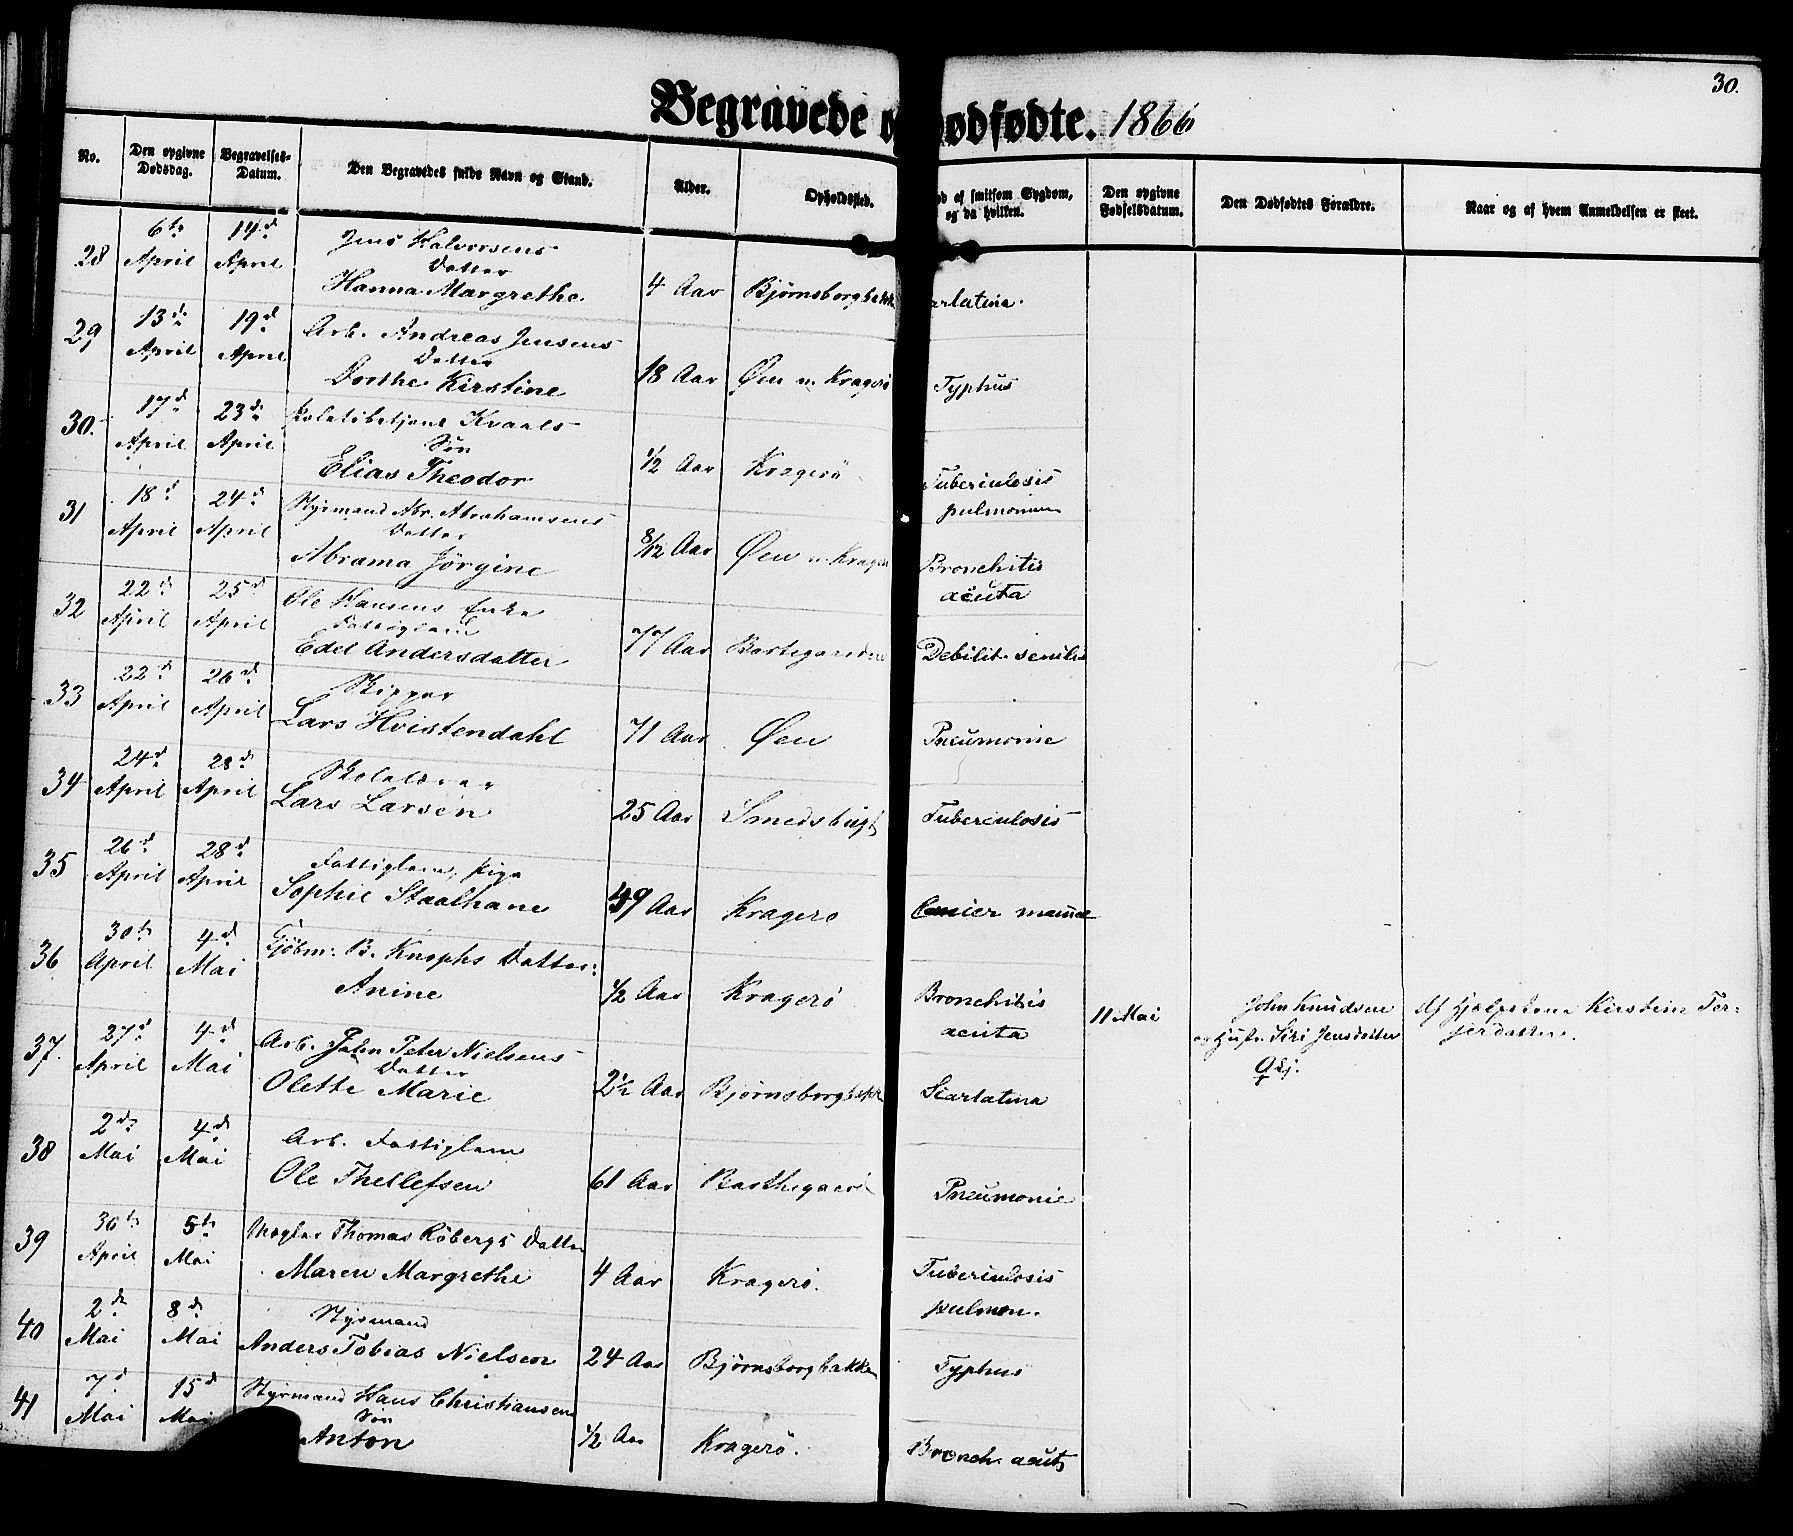 30.
Begravede o ødfødte. 1866
No.
Den opgivne Dødsdag.
Begravelses-Datum.
Den Begravedes fulde Navn og Stand.
Alder.
Opholdssted.
d af smitsom Sygdom, og da hvilken.
Den opgivne Fødselsdatum.
Den Dødfødtes Forældre.
Naar og af hvem Anmeldelsen er skeet.
28 6te April 14d April Jens Halvorsens Datter Hanna Margrethe. 4 Aar Bjørnsborgbakk arlatina.
29 13de April 19d April Arb. Andreas Jensens Datter Dorthe Kirstine 18 Aar Øen v. Kragerø Typhus
30. 17d April 23de April Politibetjent Kvaals Søn Elias Theodor 1/2 Aar Kragerö Tuberculosis pulmonum
31 18d April 24d April Styrmand Abr. Abrahamsens Datter Abrama Jörgine 8/12 Aar Øen v. Krager Bronchitis acuta
32 22d April 25d April Ole Hansens Enke Fattiglem Edel Andersdatter 77 Aar Barthegaarden Debilit. senilis
33 22d April 26d April Skipper Lars Hvistendahl 71 Aar Øen Pneumonie
34 24d April 28d April Skolelærer Lars Larsen 25 Aar Smedsbugt Tuberculosis
35 26d April 28d April Fattiglem, Pige Sophie Staalhane 49 Aar Kragerø Cancer mamae
36 30te April 4d Mai Kjöbm: B. Knophs Datter: Anine 1/2 Aar Kragerö Bronchitis acuta
11 Mai John Knudsen og Hust. Siri Jensdatter Qkj. Af Hjælpekone Kirstine Terjersdatter.
37. 27d April 4d Mai Arb. John Peter Nielsens Datter Olette Marie 2 1/2 Aar Bjørnsborgbakk Scarlatina
38 2de Mai 4d Mai Arb. Fattiglem Ole Thellefsen 61 Aar Barthegaard Pneumonie
39 30te April 5te Mai Mægler Thomas Röbergs Datter Maren Margrethe 4 Aar Kragerö. Tuberculosis pulmon.
40 2de Mai 8de Mai Styrmand Anders Tobias Nielsen 24 Aar Björnsborgbakken Typhus
41 7d Mai 15d Mai Styrmand Hans Christiansens Søn Anton 1/2 Aar Kragerö. Bronch. acuta